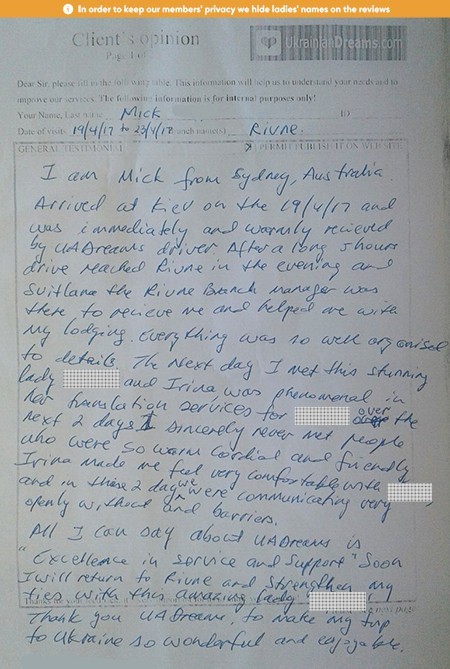 In order to keep our members' privacy we hide ladies' names on the reviews
Client's opinion
UkrainianDreams.com
Page 1 of
Dear Sir, please fill in the following table. This information will help us to understand your needs and to
improve our services. The following information is for internal purposes only!
Your Name, Last name Mick ID
Date of visits 19/4/17 to 23/4/17 Rivne.
GENERAL TESTIMONIAL I PERMIT PUBLISH IT ON WEBSITE
I am Mick from Sydney, Australia.
Arrived at Kiev on the 19/4/17 and
was immediately and warmly recieved
by UADreams driver. After a long 5 hours
drive reached Rivne in the evening and
Svitlana the Rivne Branch manager was
there to recieve me and helped me with
my lodging. Everything was so well organised
to details. The next day I met this stunning
lady and Irina was phenomenal in
her translation services for over the
next 2 days. I sincerely never met people
who were so warm cordial and friendly
Irina made me feel very comfortable with
and in these 2 days we were communicating very
openly without any barriers.
All I can say about UADreams is
"Excellence in service and support" Soon
I will return to Rivne and strengthen my
ties with this amazing lady
next page
Thank you UADreams, to make my trip
to Ukraine so wonderful and enjoyable.